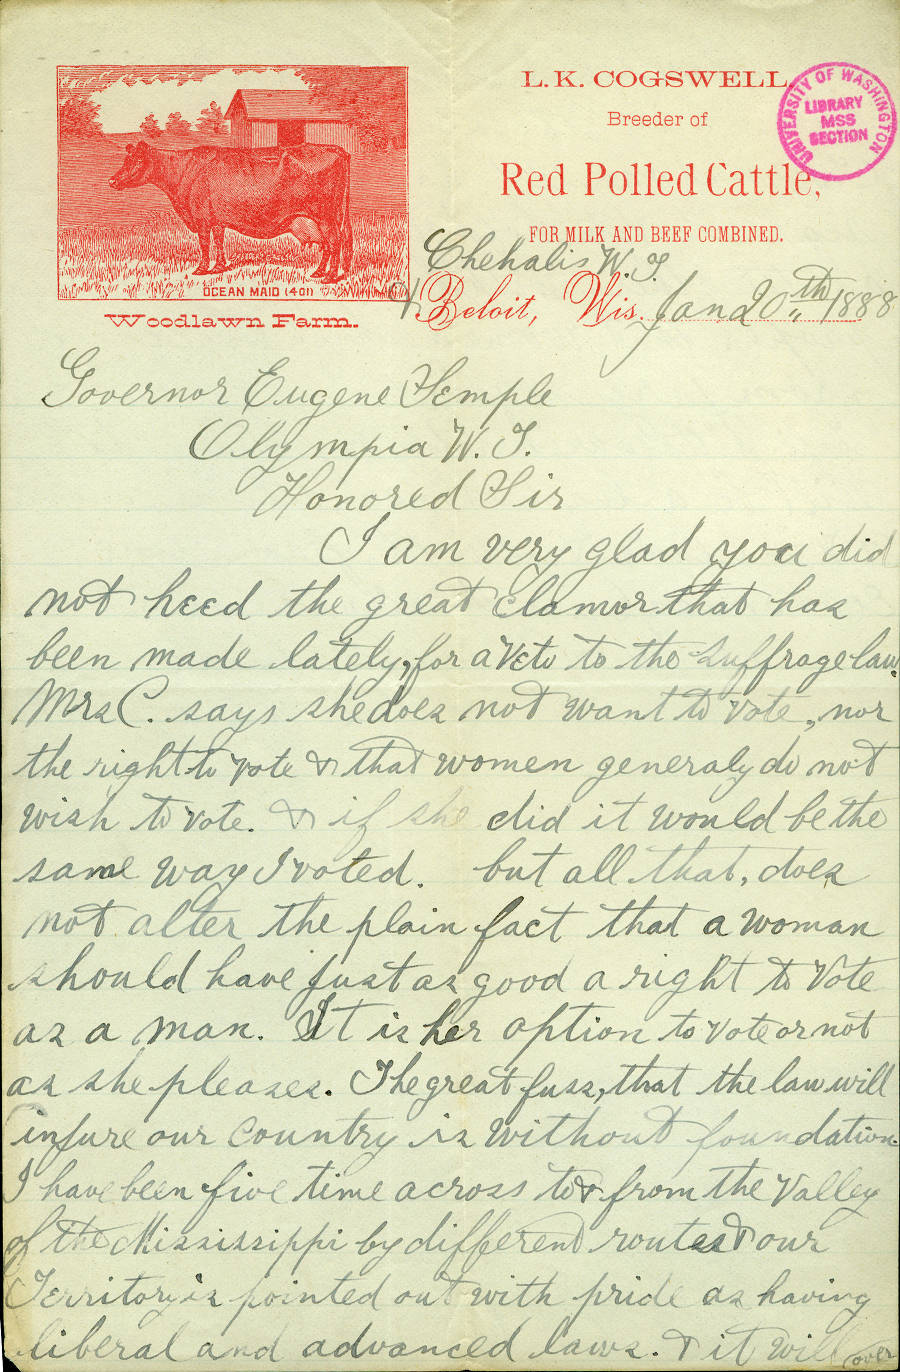 L.K. COGSWELL,
Breeder of
Red Polled Cattle,
FOR MILK AND BEEF COMBINED.
UNIVERSITY OF WASHINGTON
LIBRARY
MSS
SECTION
OCEAN MAID (401)
Woodlawn Farm.
Chehalis W. T.
Beloit, Wis. Jan 20th 1888
Governor Eugene Semple
Olympia W. T.
Honored Sir
I am very glad you did
not heed the great clamor that has
been made lately, for a veto to the Suffrage law.
Mrs C. says she does not want to vote, nor
the right to vote & that women generaly do not
wish to vote. & if she did it would be the
same way I voted. but all that, does
not alter the plain fact that a woman
should have just as good a right to vote
as a man. It is her option to vote or not
as she pleases. The great fuss, that the law will
injure our country is without foundation.
I have been five time across to & from the valley
of the Mississippi by different routes & our
Territory is pointed out with pride as having
liberal and advanced laws. & it will
over